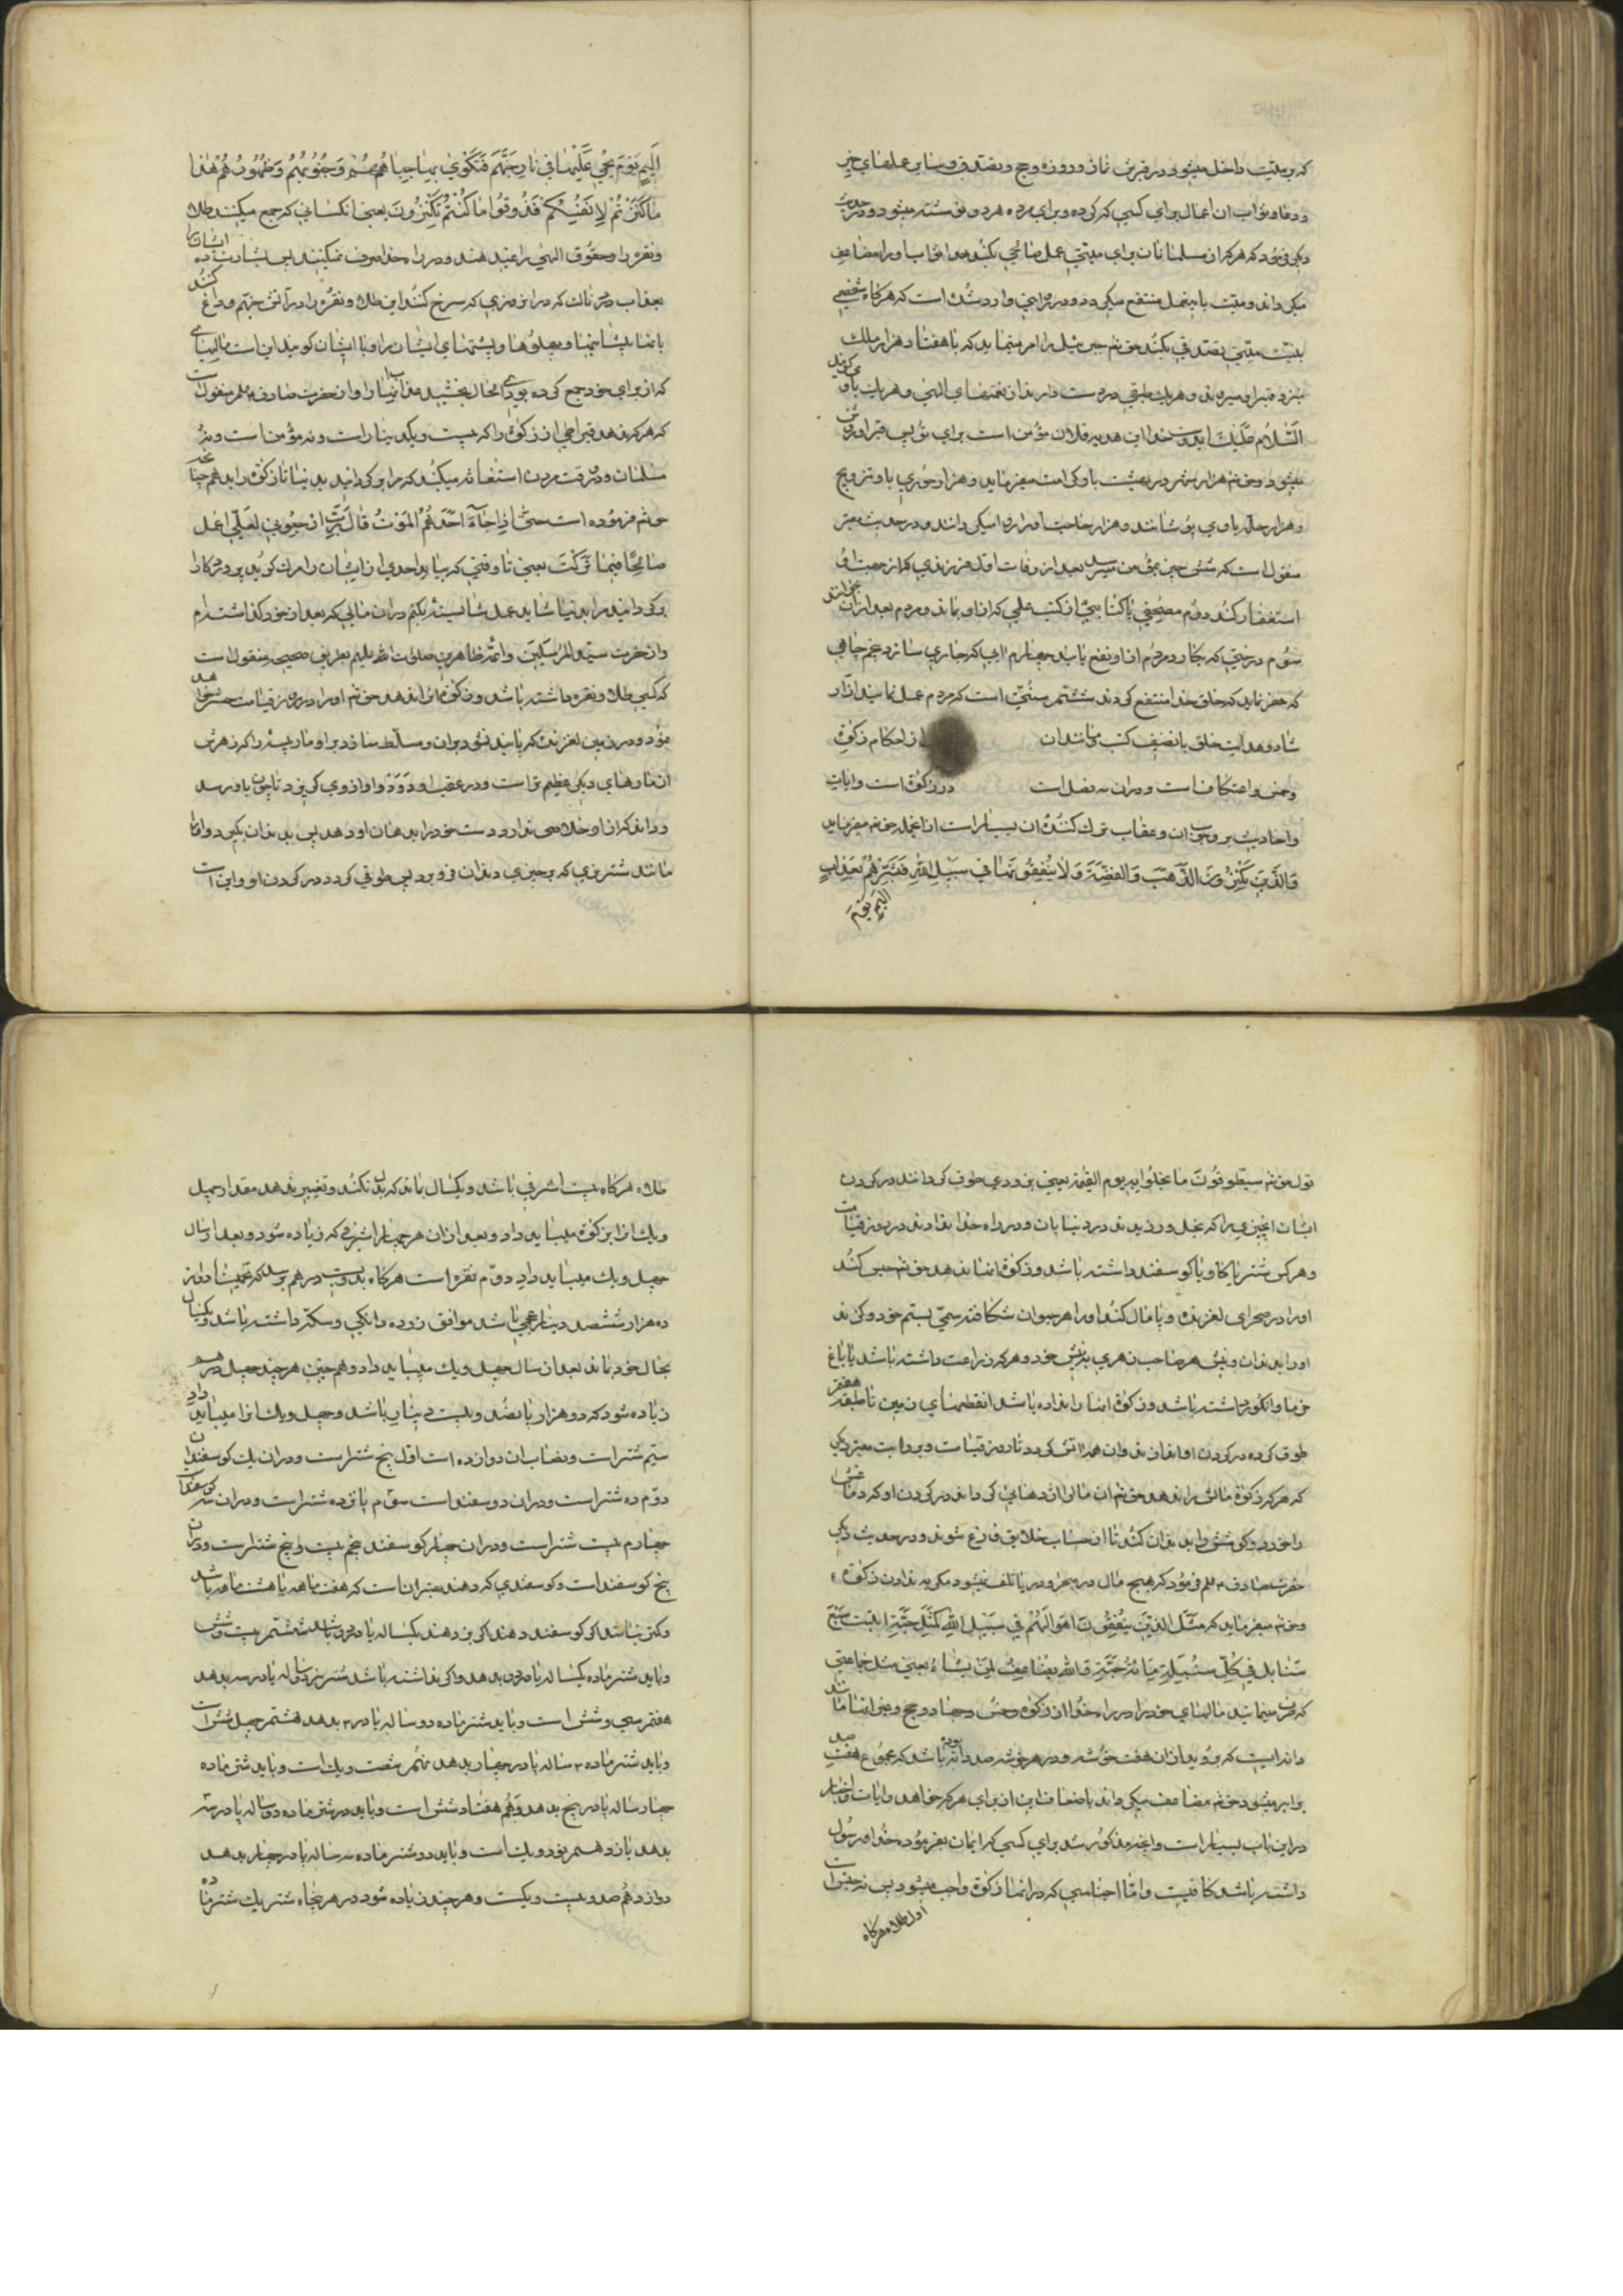 که بر میّت داخل میشود در قبرش نماز و روزه و حج و تصدق و سایر عملهای خیر
و دعا و ثواب ان اعمال برای کسی که کرده و برای مرده هر دو نوشته میشود و در حدیث
دیکر فرمود که هر که از مسلمانان برای میتی عمل صالحی بکند خدا ثواب او را مضاعف
میکرداند و میّت بان عمل منتفع میکردد و در روایتی وارد شده است که هرکاه شخصی
بنیّت میّتی تصدّق بکند حق تعم جبرئیل را امر مینماید که با هفتاد هزار ملک
بنزد قبر او میروند و هر یک طبقی در دست دارند از نعمتهای الهی و هر یک باو میکویند
السّلام علیک ای دوست خدا این هدیه فلان مؤمن است برای تو پس قبر او روشن
میشود و حق تعم هزار شهر در بهشت باو کرامت میفرماید و هزار حوری باو تزویج
و هزار حلّه باو می پوشانند و هزار حاجت او را روا میکردانند و در حدیث معتبر
منقول است که شش چیز بمؤمن میرسد بعد از وفات اوّل فرزندی که از جهت او
استغفار کند دوّم مصحفی یا کتابی از کتب علمی که از او بماند و مردم بعد از ان بخوانند
سوّم درختی که بکارد و مردم از او نفع یابند چهارم ابی که جاری سازد پنجم چاهی
که حفر نماید که خلق خدا منتفع کردند ششم سنّتی است که مردم عمل نمایند از ارشاد
و هدایت خلق یا تصنیف کتب مانند ان از احکام زکوة
و خمس و اعتکاف است و در ان سه فصل است در زکوة است و ایات
و احادیث بر وجوب ان و عقاب ترک کنندهٔ ان بسیار است از انجمله حق تعم میفرماید
وَالَّذینَ یَکْنِزُونَ الذَّهَبَ وَالفِضَّةَ وَلا یُنْفِقُونَهَا فی سَبیلِ اللّهِ فَبَشِّرْهُمْ بِعَذابٍ
اَلیمٍ یَوْمَ
اَلیمٍ یَوْمَ یُحْمی عَلَیْهَا فی نارِ جَهَنَّمَ فَتُکْوی بِهَا جِبَاهُهُمْ وَجُنُوبُهُمْ وَظُهُورُهُمْ هٰذا
مٰا کَنَزْتُمْ لِاَنْفُسِکُمْ فَذُوقُوا مٰا کُنْتُمْ تَکْنِزُونَ یعنی انکسانی که جمع میکنند طلا
و نقره را و حقوق الهی را نمیدهند و در راه خدا صرف نمیکنند پس بشارت ده ایشانرا
بعذاب دردناک در ان روزی که سرخ کنند این طلا و نقره را در آتش جهنّم و داغ کنند
بانها پیشانیها و پهلوها و پشتهای ایشان را و با ایشان کویند این است مالهای
که از برای خود جمع کرده بودید الحال بچشید عذاب انها را و از حضرت صادق علم منقول است
که هر که ندهد قیراطی از زکوة را که بیست و یک دینار است و نه مؤمن است و نه
مسلمان و در وقت مردن استغاثه میکند که مرا بر کردانید بدنیا تا زکوة را بدهم چنانچه
حق تعم فرموده است حَتّٰی اِذا جٰاءَ اَحَدَهُمُ المَوْتُ قٰالَ رَبِّ ارْجِعُونِ لَعَلّی اَعْمَلُ
صٰالِحًا فیمٰا تَرَکْتُ یعنی تا وقتی که بیاید احدی از ایشان را مرک کوید پروردکارا
برکردانید مرا بدنیا شاید عمل شایسته بکنم در ان مالی که بعد از خود کذاشته‌ام
و از حضرت سیّد المرسلین و ائمّه طاهرین صلوات الله علیهم بطریق صحیح منقول است
که کسی طلا و نقره داشته باشد و زکوة انرا ندهد حق تعم او را در روز قیامت حبس خواهد
نمود و در زمینی لغزنده که پا بند نشود بران و مسلّط سازد بر او مار پیری را که زهرش
از مارهای دیکر عظیم‌تر است و در عقب او دَوَد و او از وی کریزد تا چون باو برسد
و داند که از او خلاصی ندارد دست خود را بدهان او دهد پس بدندان بکیرد او را
مانند شتر نری که چیزی بدندان فرو برد پس طوقی کردد در کردن او و این است
قول حق تعم سَیُطَوَّقُونَ مٰا بَخِلُوا بِهِ یوم القیمة یعنی بزودی طوق کردانند در کردن
ایشان انچیزی را که بخل ورزیدند در دنیا بان و در راه خدا ندادند در روز قیامت
و هر کس شتر یا کاو یا کوسفند داشته باشد و زکوة انها ندهد حق تعم حبس کند
او را در صحرای لغزنده و پامال کند او را هر حیوان شکافته سمّی بسم خود و کزند
او را بدندان و نیش هر صاحب زهری بنیش خود و هر که زراعت داشته باشد یا باغ
خرما و انکور داشته باشد و زکوة انها را نداده باشد ان قطعهای زمین تا طبقه هفتم
طوق کرده در کردن او اندازند و ان همه آتش کردد تا روز قیامت و بروایت معتبر دیکر
که هر که زکوة مالش را ندهد حق تعم ان مال را اژدهایی کرداند در کردن او که دماغش را
را خورد و کوشش را بدندان کند تا از حساب خلایق فارغ شوند و در حدیث دیکر
حضرت صادق علم فرمود که هیچ مال در صحرا و دریا تلف نمیشود مکر به ندادن زکوة
و حق تعم میفرماید که مَثَلُ الَّذینَ یُنْفِقُونَ اَمْوالَهُمْ فی سَبیلِ اللّهِ کَمَثَلِ حَبَّةٍ اَنْبَتَتْ سَبْعَ
سَنابِلَ فی کُلِّ سُنْبُلَةٍ مِائَةُ حَبَّةٍ وَاللّهُ یُضٰاعِفُ لِمَنْ یَشٰاءُ یعنی مثل جماعتی
که صرف مینمایند مالهای خود را در راه خدا از زکوة و خمس و جهاد و حج و غیر انها مانند
دانه ایست که بروید از ان هفت خوشه و در هر خوشه صد دانه بوده باشد که مجموع هفتصد
برابر میشود حق تعم مضاعف میکرداند باضعاف این از برای هر که خواهد و ایات و اخبار
در این باب بسیار است و انچه مذکور شد برای کسی که ایمان بفرموده خدا و رسول
داشته باشد کافیست و امّا اجناسی که در انها زکوة واجب میشود پس نه چیز است
اوّل طلا هرکاه
طلا هرکاه بیست اشرفی باشد و یکسال بماند که بدل نکند و تغییر ندهد مقدار چهل
و یک انرا بزکوة میباید داد و بعد از ان هر چهار اشرفی که زیاده شود و بعد از سال
چهل و یک میباید داد دوّم نقره است هرکاه بدویست درهم برسد که تخمینا دوازده
ده هزار ششصد دینار عجمی باشد موافق نرده دانکی و سکّه داشته باشد و یکسال
بحال خود بماند بعد از سال چهل و یک میباید داد و همچنین هر چند چهل درهم
زیاده شود که دو هزار پانصد و بیست دینار باشد و چهل و یک انرا میباید داد
سیّم شتر است و نصاب ان دوازده است اوّل پنج شتر است و در ان یک کوسفند است
دوّم ده شتر است و در ان دو کوسفند است سوّم پانزده شتر است و در ان سه کوسفند است
چهارم بیست شتر است و در ان چهار کوسفند پنجم بیست و پنج شتر است و در ان
پنج کوسفند است و کوسفندی که دهند بهتر ان است که هفت ماهه یا هشت ماهه باشد
و کمتر نباشد اکر کوسفند دهند اکر بز دهند یکساله پا در دو باشد ششم بیست و شش
و باید شتر ماده یکساله پا در دو بدهد و اکر نداشته باشد شتر نر دو ساله پا در سه بدهد
هفتم سی و شش است و باید شتر ماده دو ساله پا در ۳ بدهد هشتم چهل شش است
و باید شتر ماده ۳ ساله پا در چهار بدهد نهم شصت و یک است و باید شتر ماده
چهار ساله پا در پنج بدهد دهم هفتاد شش است و باید دو شتر ماده دو ساله پا در سه
بدهد یازدهم نود و یک است و باید دو شتر ماده سه ساله پا در چهار بدهد
دوازدهم صد و بیست و یکست و هر چند زیاده شود در هر پنجاه شتر یک شتر ماده